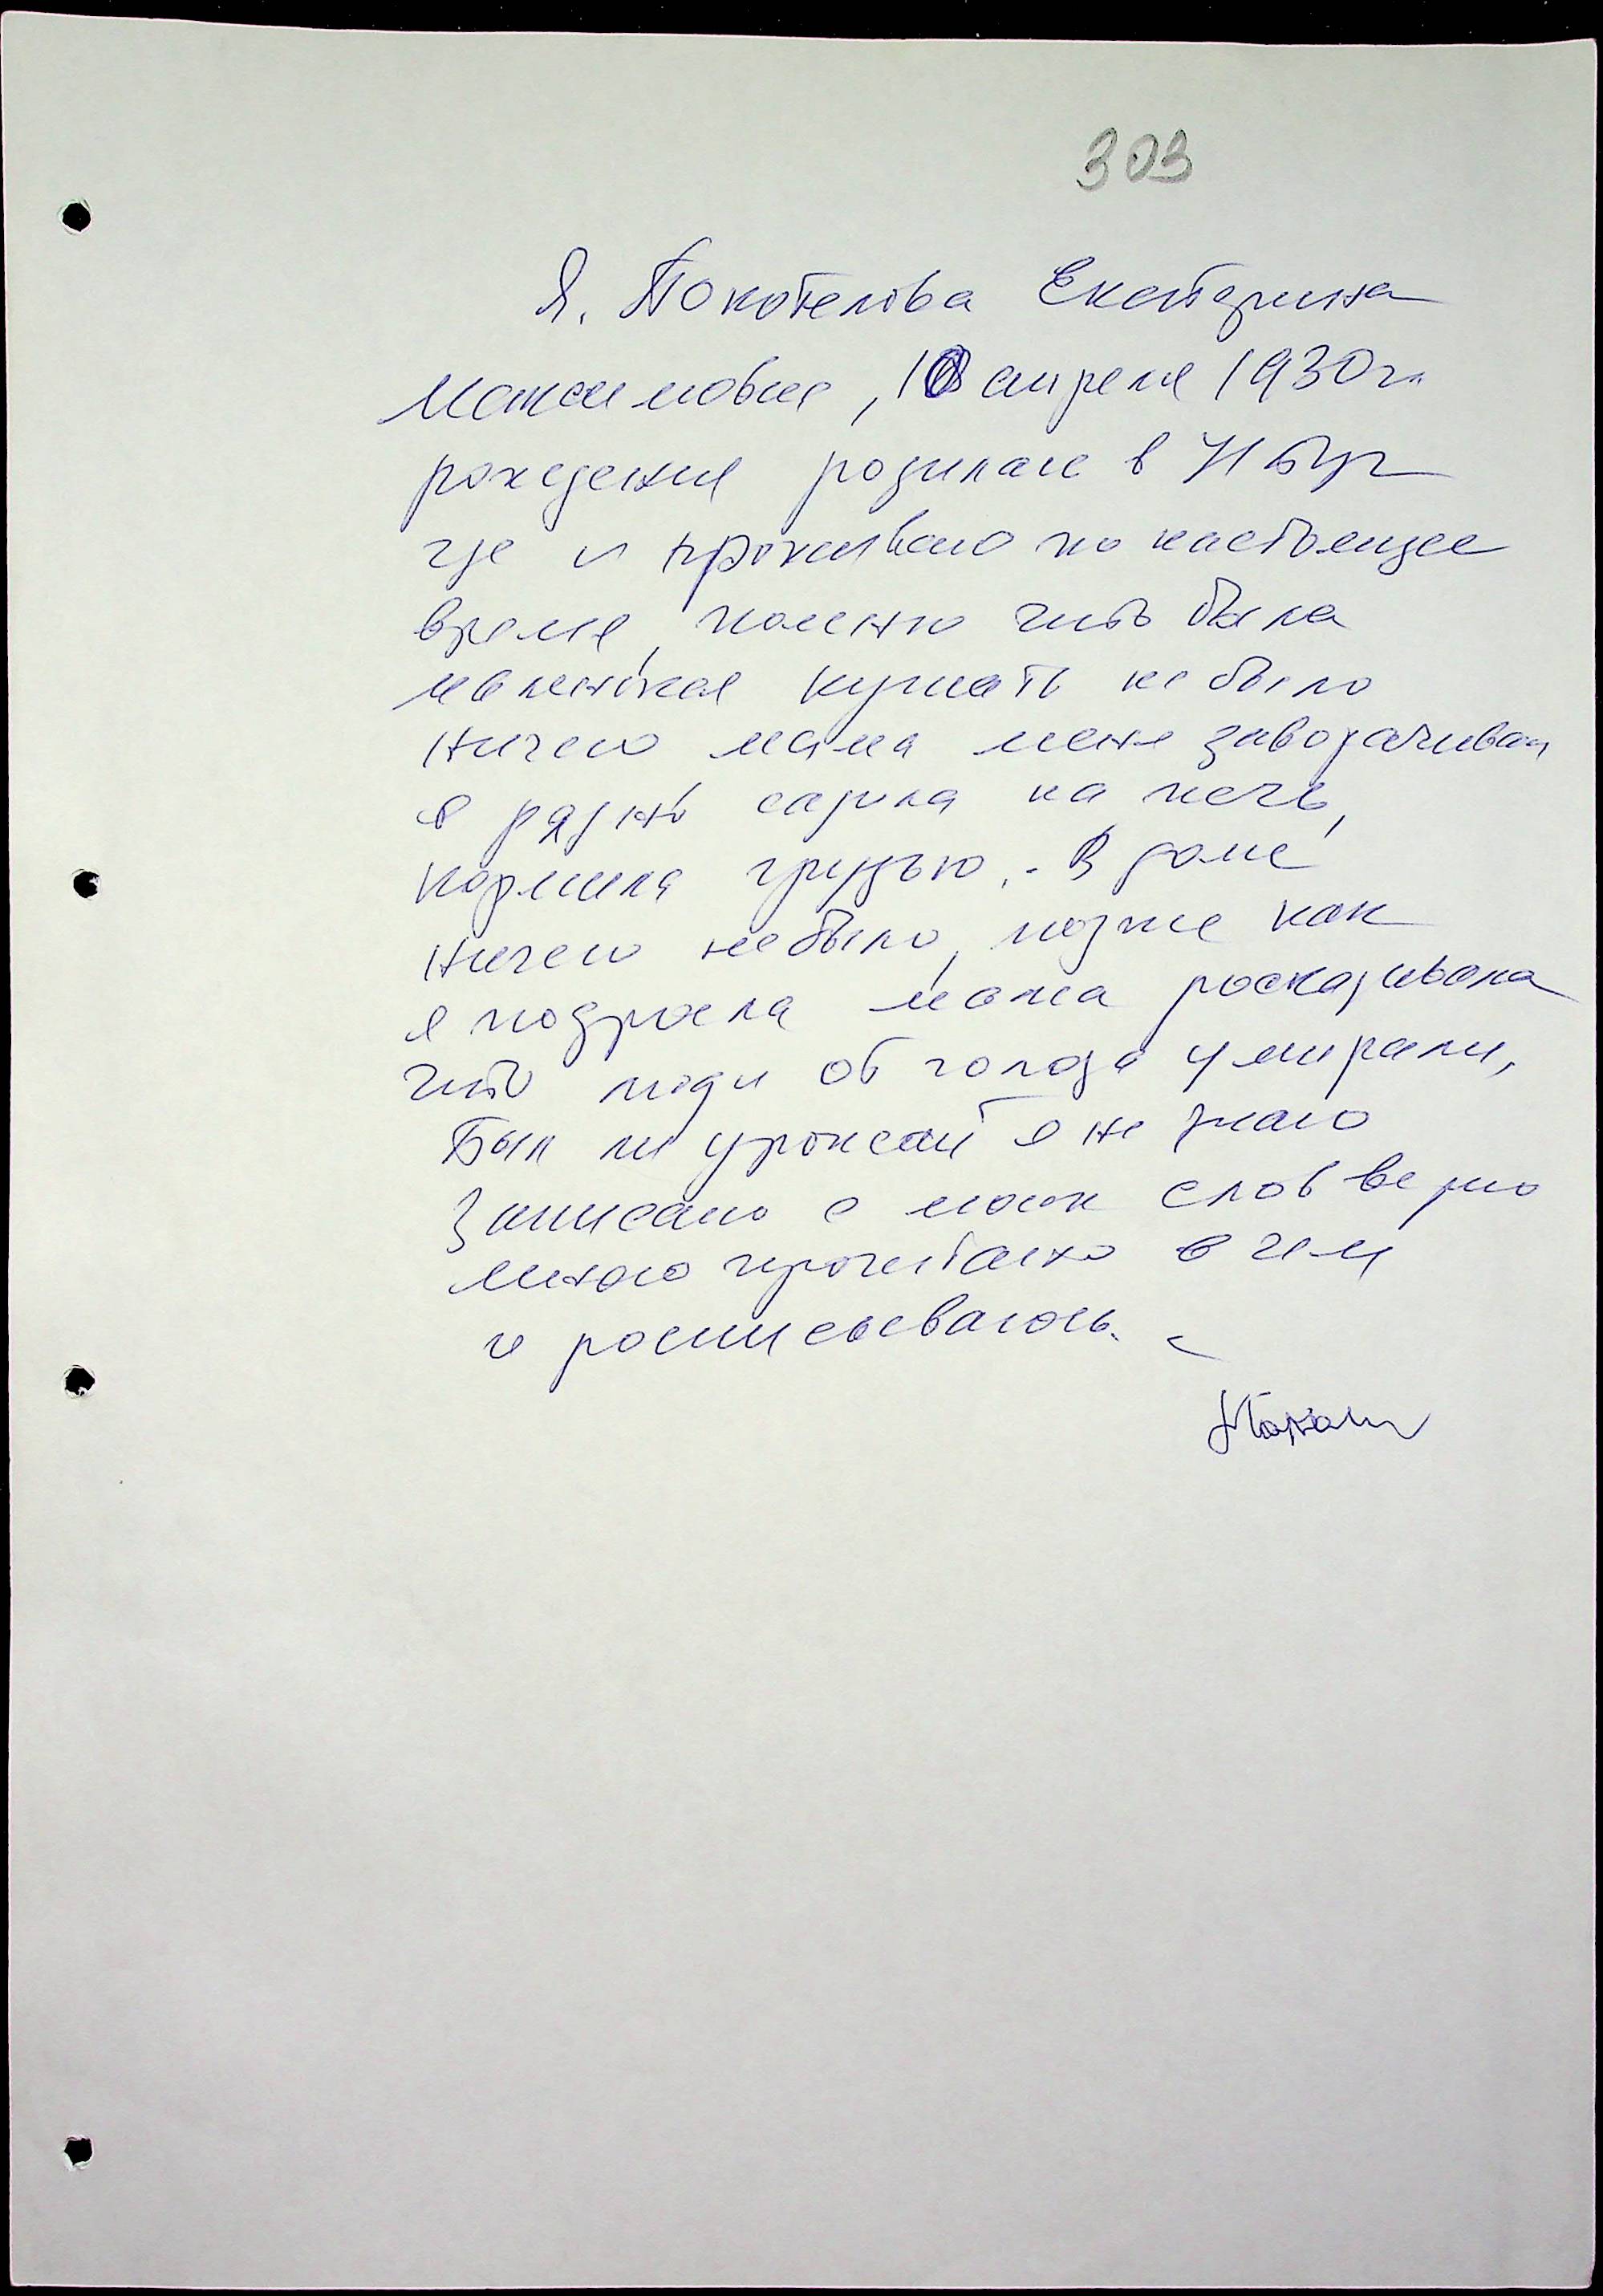 303
Я. Покотелова Екатерина
Максимовна, 10 апреля 1930 г.
рождения родилась в Н Буг
где и проживаю по настоящее
время, помню что была
маленькая кушать не было
ничего мама меня заворачивала
в рядно садила на печь,
кормила грудью. - В доме
ничего небыло, позже как
я подросла мама росказивала
что люди от голода умирали,
Был ли урожай я не знаю
Записано с моих слов верно
мною прочитано в чем
и росписываюсь.